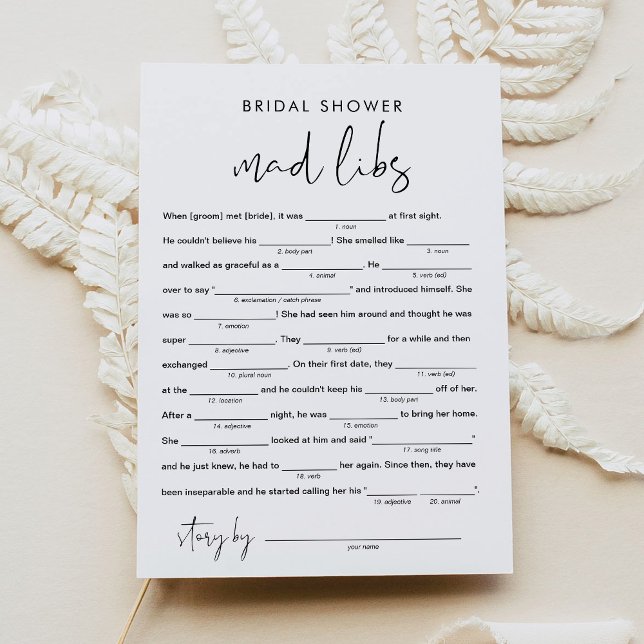 BRIDAL SHOWER
mad libs
When [groom] met [bride], it was ____________ at first sight.
1. noun
He couldn't believe his ____________! She smelled like ____________
2. body part 3. noun
and walked as graceful as a ____________. He ____________
4. animal 5. verb (ed)
over to say "____________" and introduced himself. She
6. exclamation / catch phrase
was so ____________! She had seen him around and thought he was
7. emotion
super ____________. They ____________ for a while and then
8. adjective 9. verb (ed)
exchanged ____________. On their first date, they ____________
10. plural noun 11. verb (ed)
at the ____________ and he couldn't keep his ____________ off of her.
12. location 13. body part
After a ____________ night, he was ____________ to bring her home.
14. adjective 15. emotion
She ____________ looked at him and said "____________"
16. adverb 17. song title
and he just knew, he had to ____________ her again. Since then, they have
18. verb
been inseparable and he started calling her his "____________ ____________".
19. adjective 20. animal
story by ____________
your name